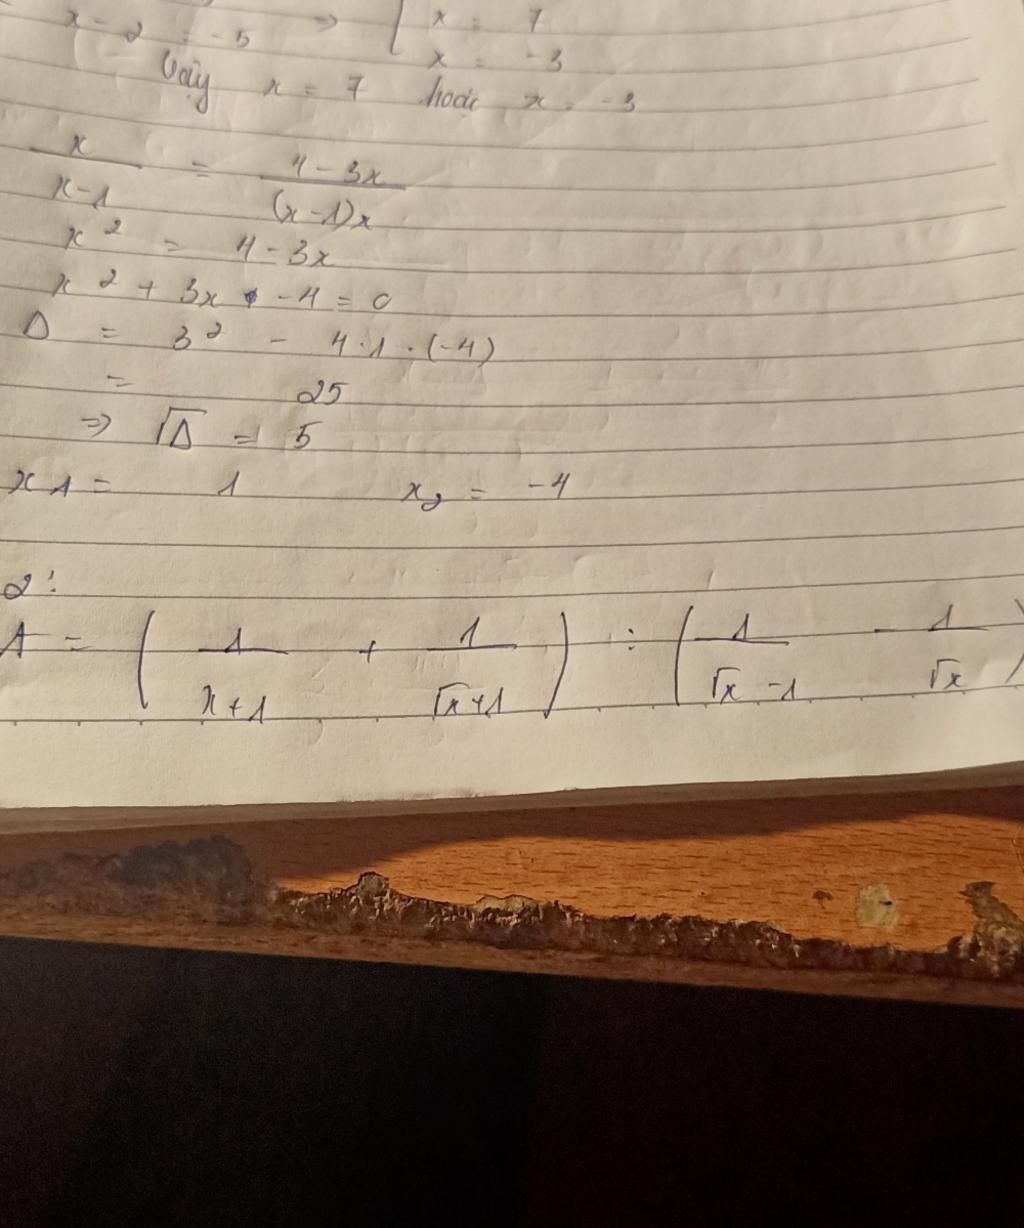 x - 2 = -5 => [ x = 7
x = -3
Vậy x = 7 hoặc x = -3
x / (x-1) = (4-3x) / ((x-1)x)
x² = 4-3x
x² + 3x -4 = 0
Δ = 3² - 4.1.(-4)
= 25
=> √Δ = 5
x1 = 1 x2 = -4
2:
A = ( 1/(x+1) + 1/(√x+1) ) : ( 1/(√x-1) - 1/√x )